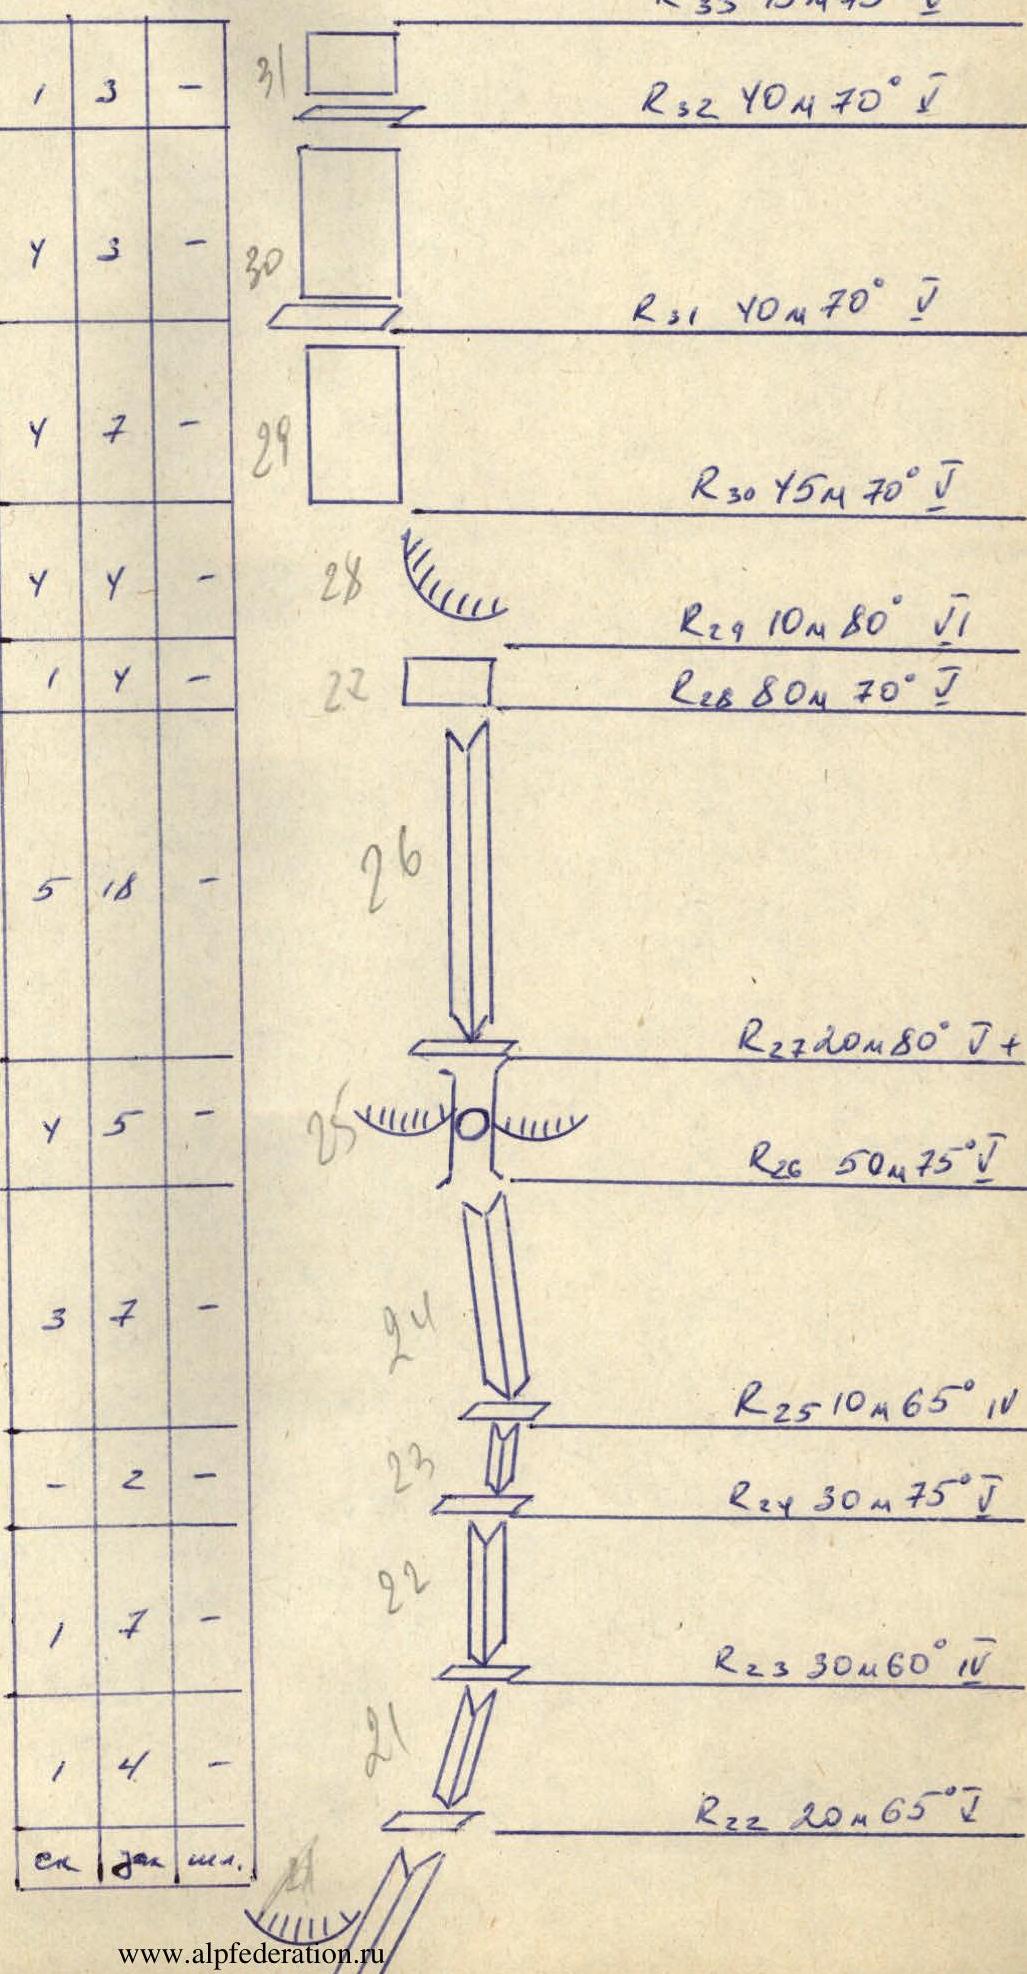 R33
31
1 3 –
R32 40м 70° V
4 3 –
30
R31 40м 70° V
4 7 –
29
R30 45м 70° V
4 4 –
28
R29 10м 80° VI
1 4 –
27
R28 80м 70° V
26
5 18 –
R27 20м 80° V+
4 5 –
25
R26 50м 75° V
3 7 –
24
R25 10м 65° IV
– 2 –
23
R24 30м 75° V
22
1 7 –
R23 30м 60° IV
21
1 4 –
R22 20м 65° V
ск зак шл.
www.alpfederation.ru